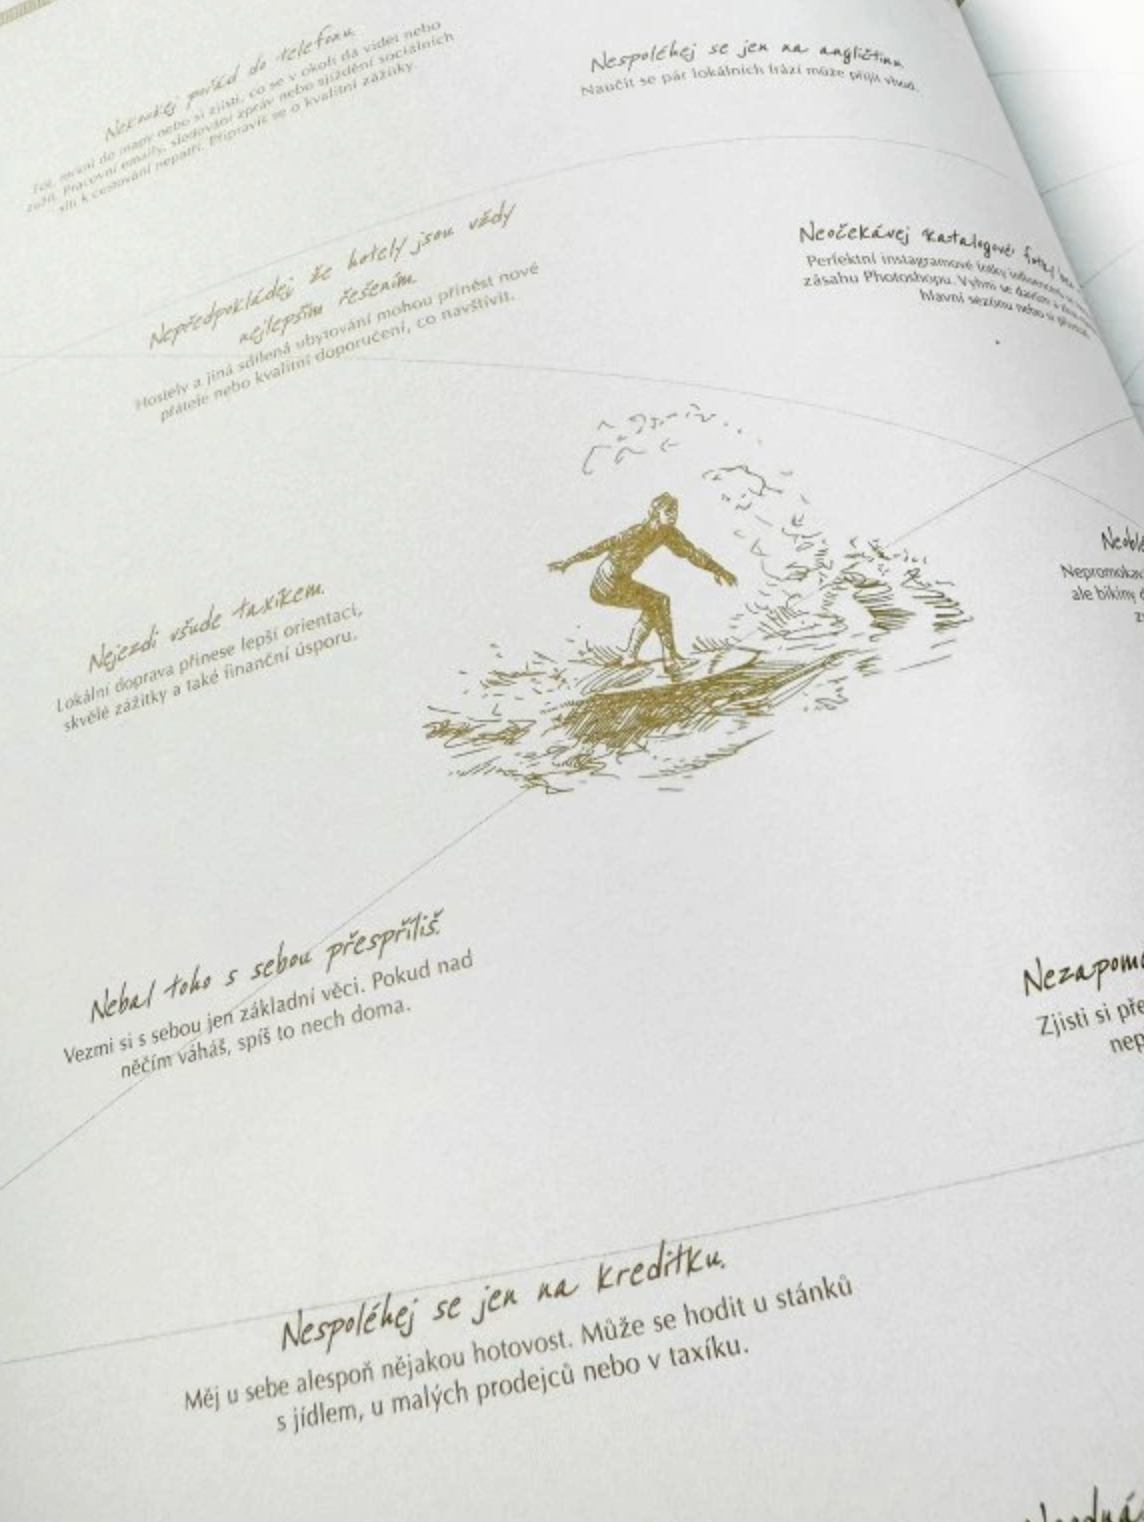 Nekoukej pořád do telefonu
Tol, mrkni do mapy nebo si zjisti, co se v okolí dá vidět nebo
zažít. Pracovní emaily, sledování zpráv nebo sjíždění sociálních
sítí k cestování nepatří. Připravíš se o kvalitní zážitky.
Nespoléhej se jen na angličtinu
Naučit se pár lokálních frází může přijít vhod.
Nepředpokládej že hotely jsou vždy
nejlepším řešením
Hostely a jiná sdílená ubytování mohou přinést nové
přátele nebo kvalitní doporučení, co navštívit.
Neočekávej katalogové fotky bez
Perfektní instagramové fotky
zásahu Photoshopu. Vyhni se davům a
hlavní sezónu nebo si
Nejezdi všude taxíkem.
Lokální doprava přinese lepší orientaci,
skvělé zážitky a také finanční úsporu.
Neoblé
Nepromokav
ale bikiny
Nebal toho s sebou přespříliš.
Vezmi si s sebou jen základní věci. Pokud nad
něčím váháš, spíš to nech doma.
Nezapomo
Zjisti si pře
nep
Nespoléhej se jen na kreditku.
Měj u sebe alespoň nějakou hotovost. Může se hodit u stánků
s jídlem, u malých prodejců nebo v taxíku.